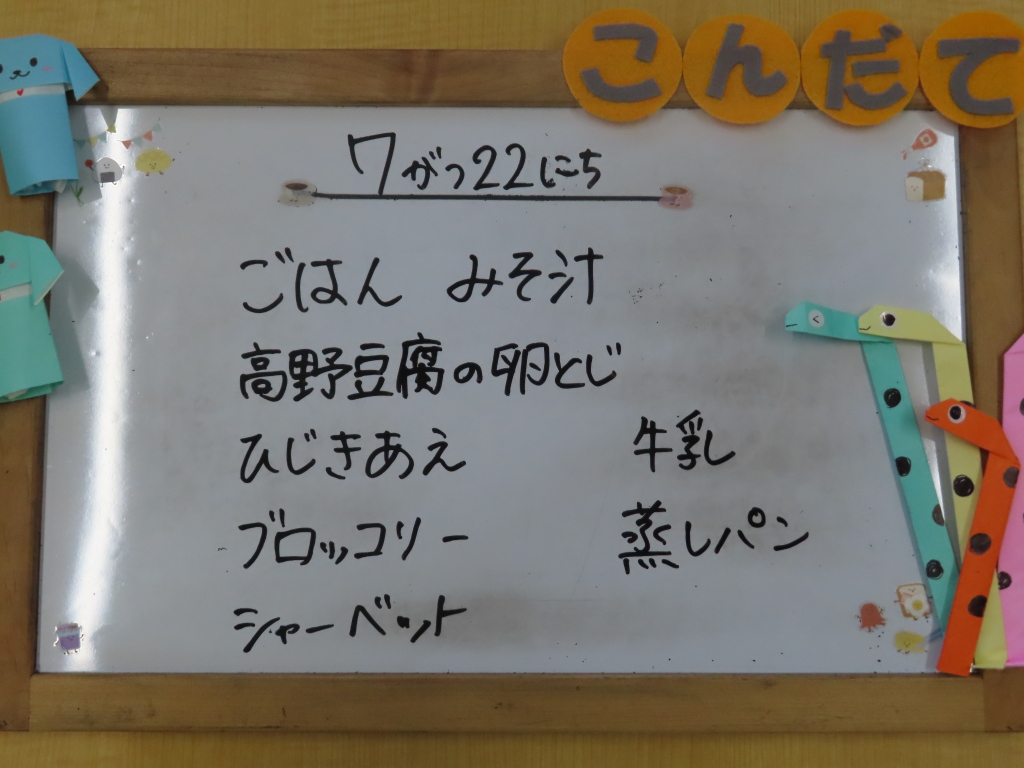 こんだて
7がつ22にち
ごはん みそ汁
高野豆腐の卵とじ
ひじきあえ
ブロッコリー
シャーベット
牛乳
蒸しパン